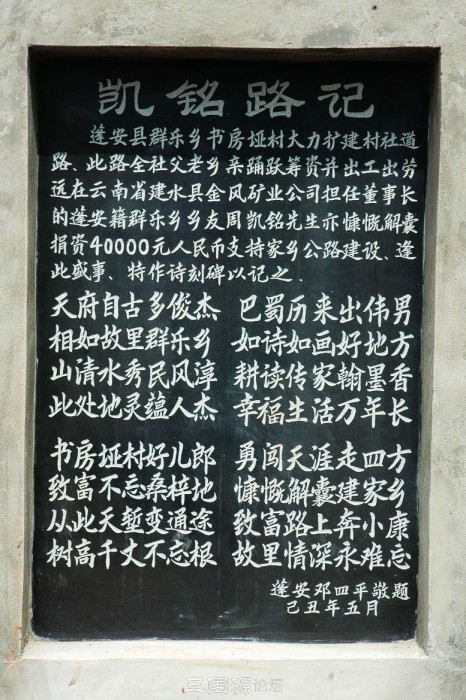 凯铭路记
蓬安县群乐乡书房垭村大力扩建村社道
路、此路全社父老乡亲踊跃筹资并出工出劳
远在云南省建水县金风矿业公司担任董事长
的蓬安籍群乐乡乡友周凯铭先生亦慷慨解囊
捐资40000元人民币支持家乡公路建设、逢
此盛事、特作诗刻碑以记之.
天府自古多俊杰 巴蜀历来出伟男
相如故里群乐乡 如诗如画好地方
山清水秀民风淳 耕读传家翰墨香
此处地灵蕴人杰 幸福生活万年长
书房垭村好儿郎 勇闯天涯走四方
致富不忘桑梓地 慷慨解囊建家乡
从此天堑变通途 致富路上奔小康
树高千丈不忘根 故里情深永难忘
蓬安邓四平敬题
己丑年五月
三国源论坛